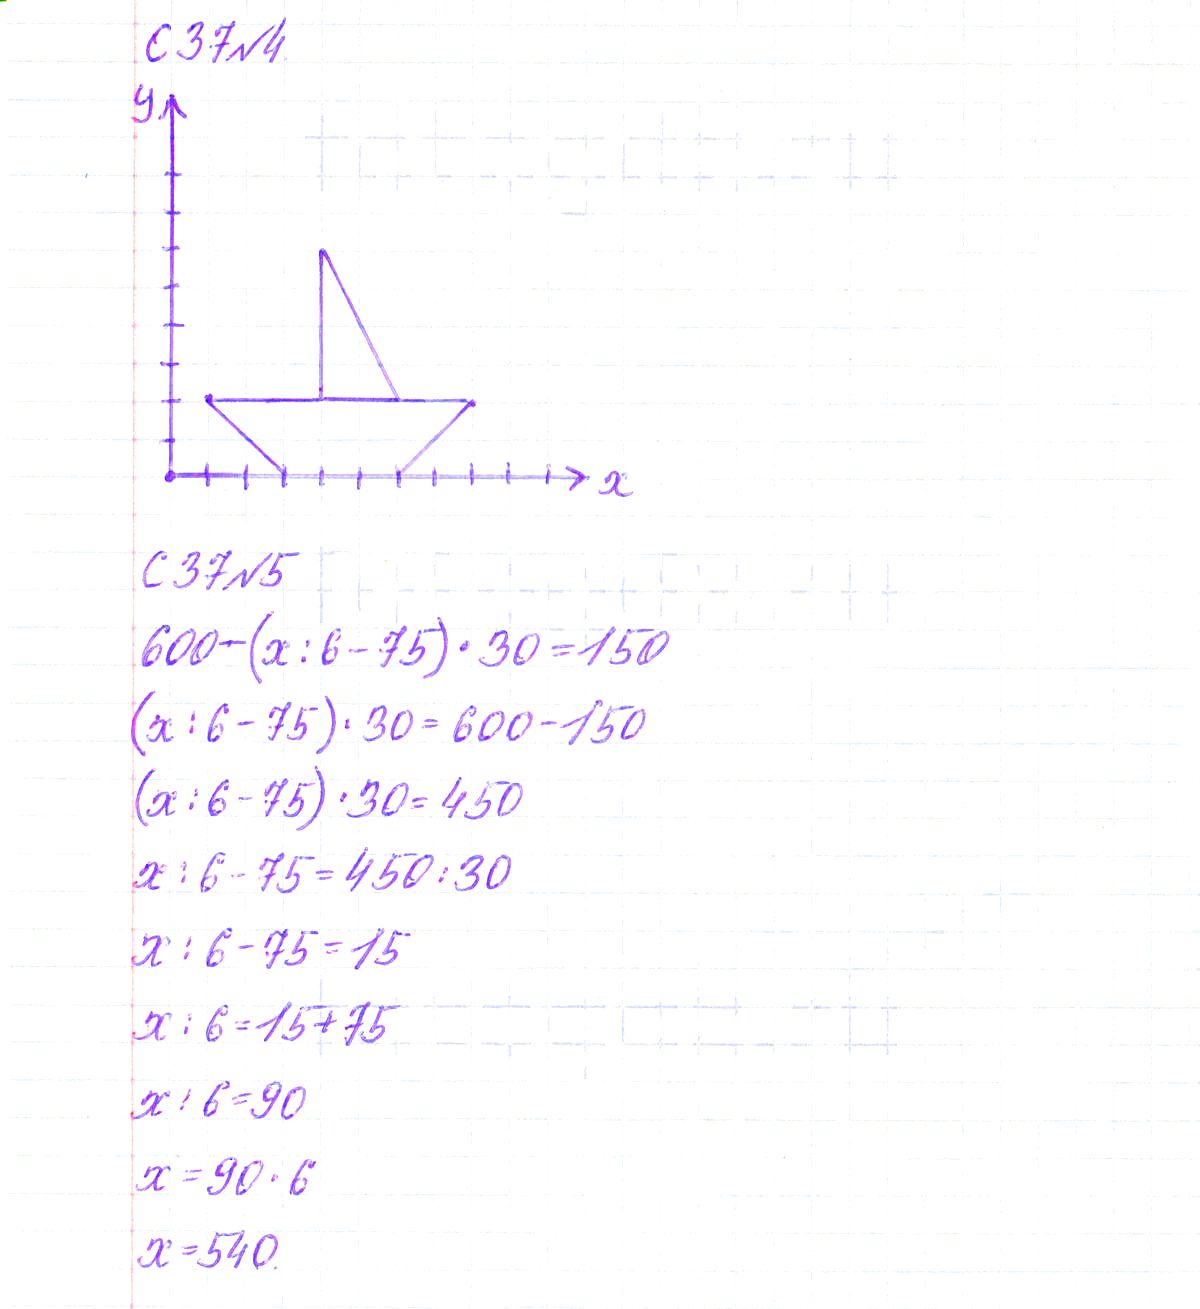 С 37 № 4
у
х
С 37 № 5
600-(х:6-75)·30=150
(х:6-75)·30=600-150
(х:6-75)·30=450
х:6-75=450:30
х:6-75=15
х:6=15+75
х:6=90
х=90·6
х=540